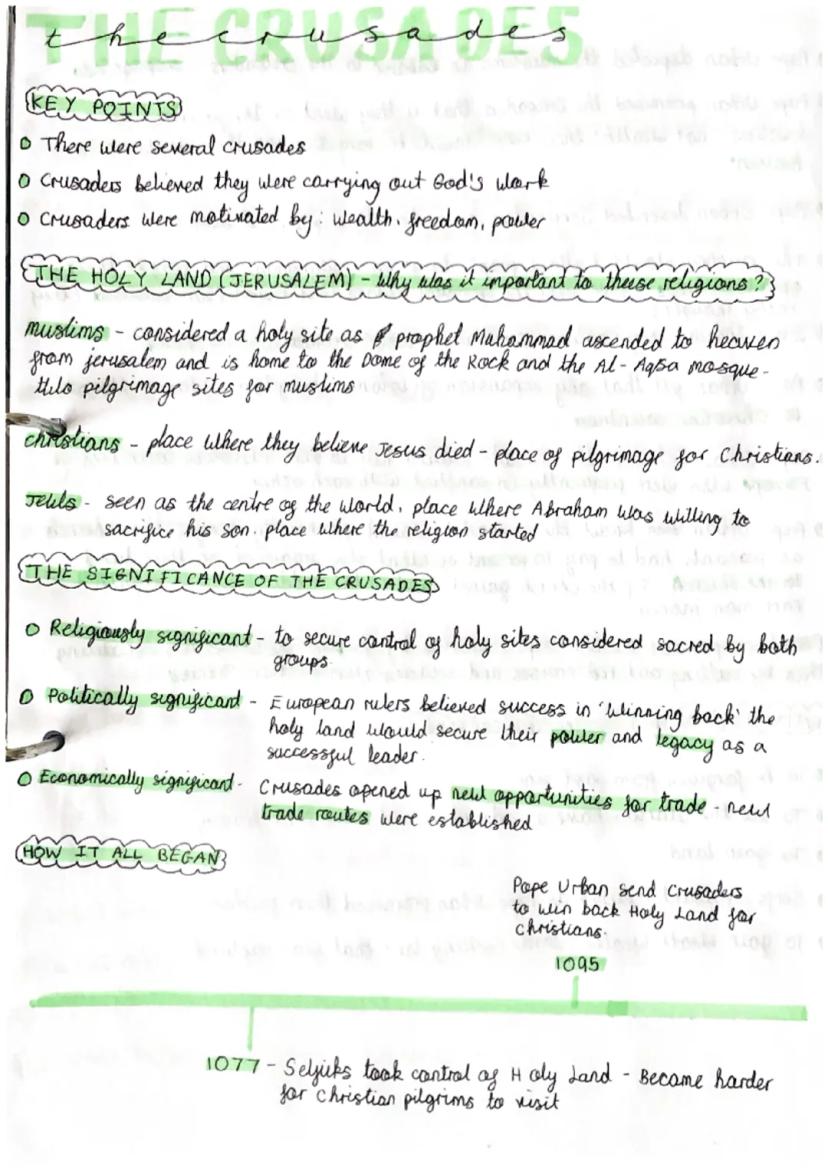 THE CRUSADES
the crusades
KEY POINTS
There were several crusades
Crusaders believed they were carrying out God's work
Crusaders were motivated by: wealth, freedom, power
THE HOLY LAND (JERUSALEM) - Why was it important to these religions?
Muslims - considered a holy site as prophet Muhammad ascended to heaven
from jerusalem and is home to the Dome of the Rock and the Al-Aqsa mosque -
two pilgrimage sites for muslims
Christians - place where they believe Jesus died - place of pilgrimage for Christians.
Jews - seen as the centre of the world, place where Abraham was willing to
sacrifice his son, place where the religion started
THE SIGNIFICANCE OF THE CRUSADES
Religiously significant - to secure control of holy sites considered sacred by both
groups.
Politically significant - European rulers believed success in 'winning back' the
holy land would secure their power and legacy as a
successful leader.
Economically significant - Crusades opened up new opportunities for trade - new
trade routes were established
HOW IT ALL BEGAN
Pope Urban send Crusaders
to win back Holy Land for
Christians.
1095
1077 - Seljuks took control of Holy Land - Became harder
for Christian pilgrims to visit